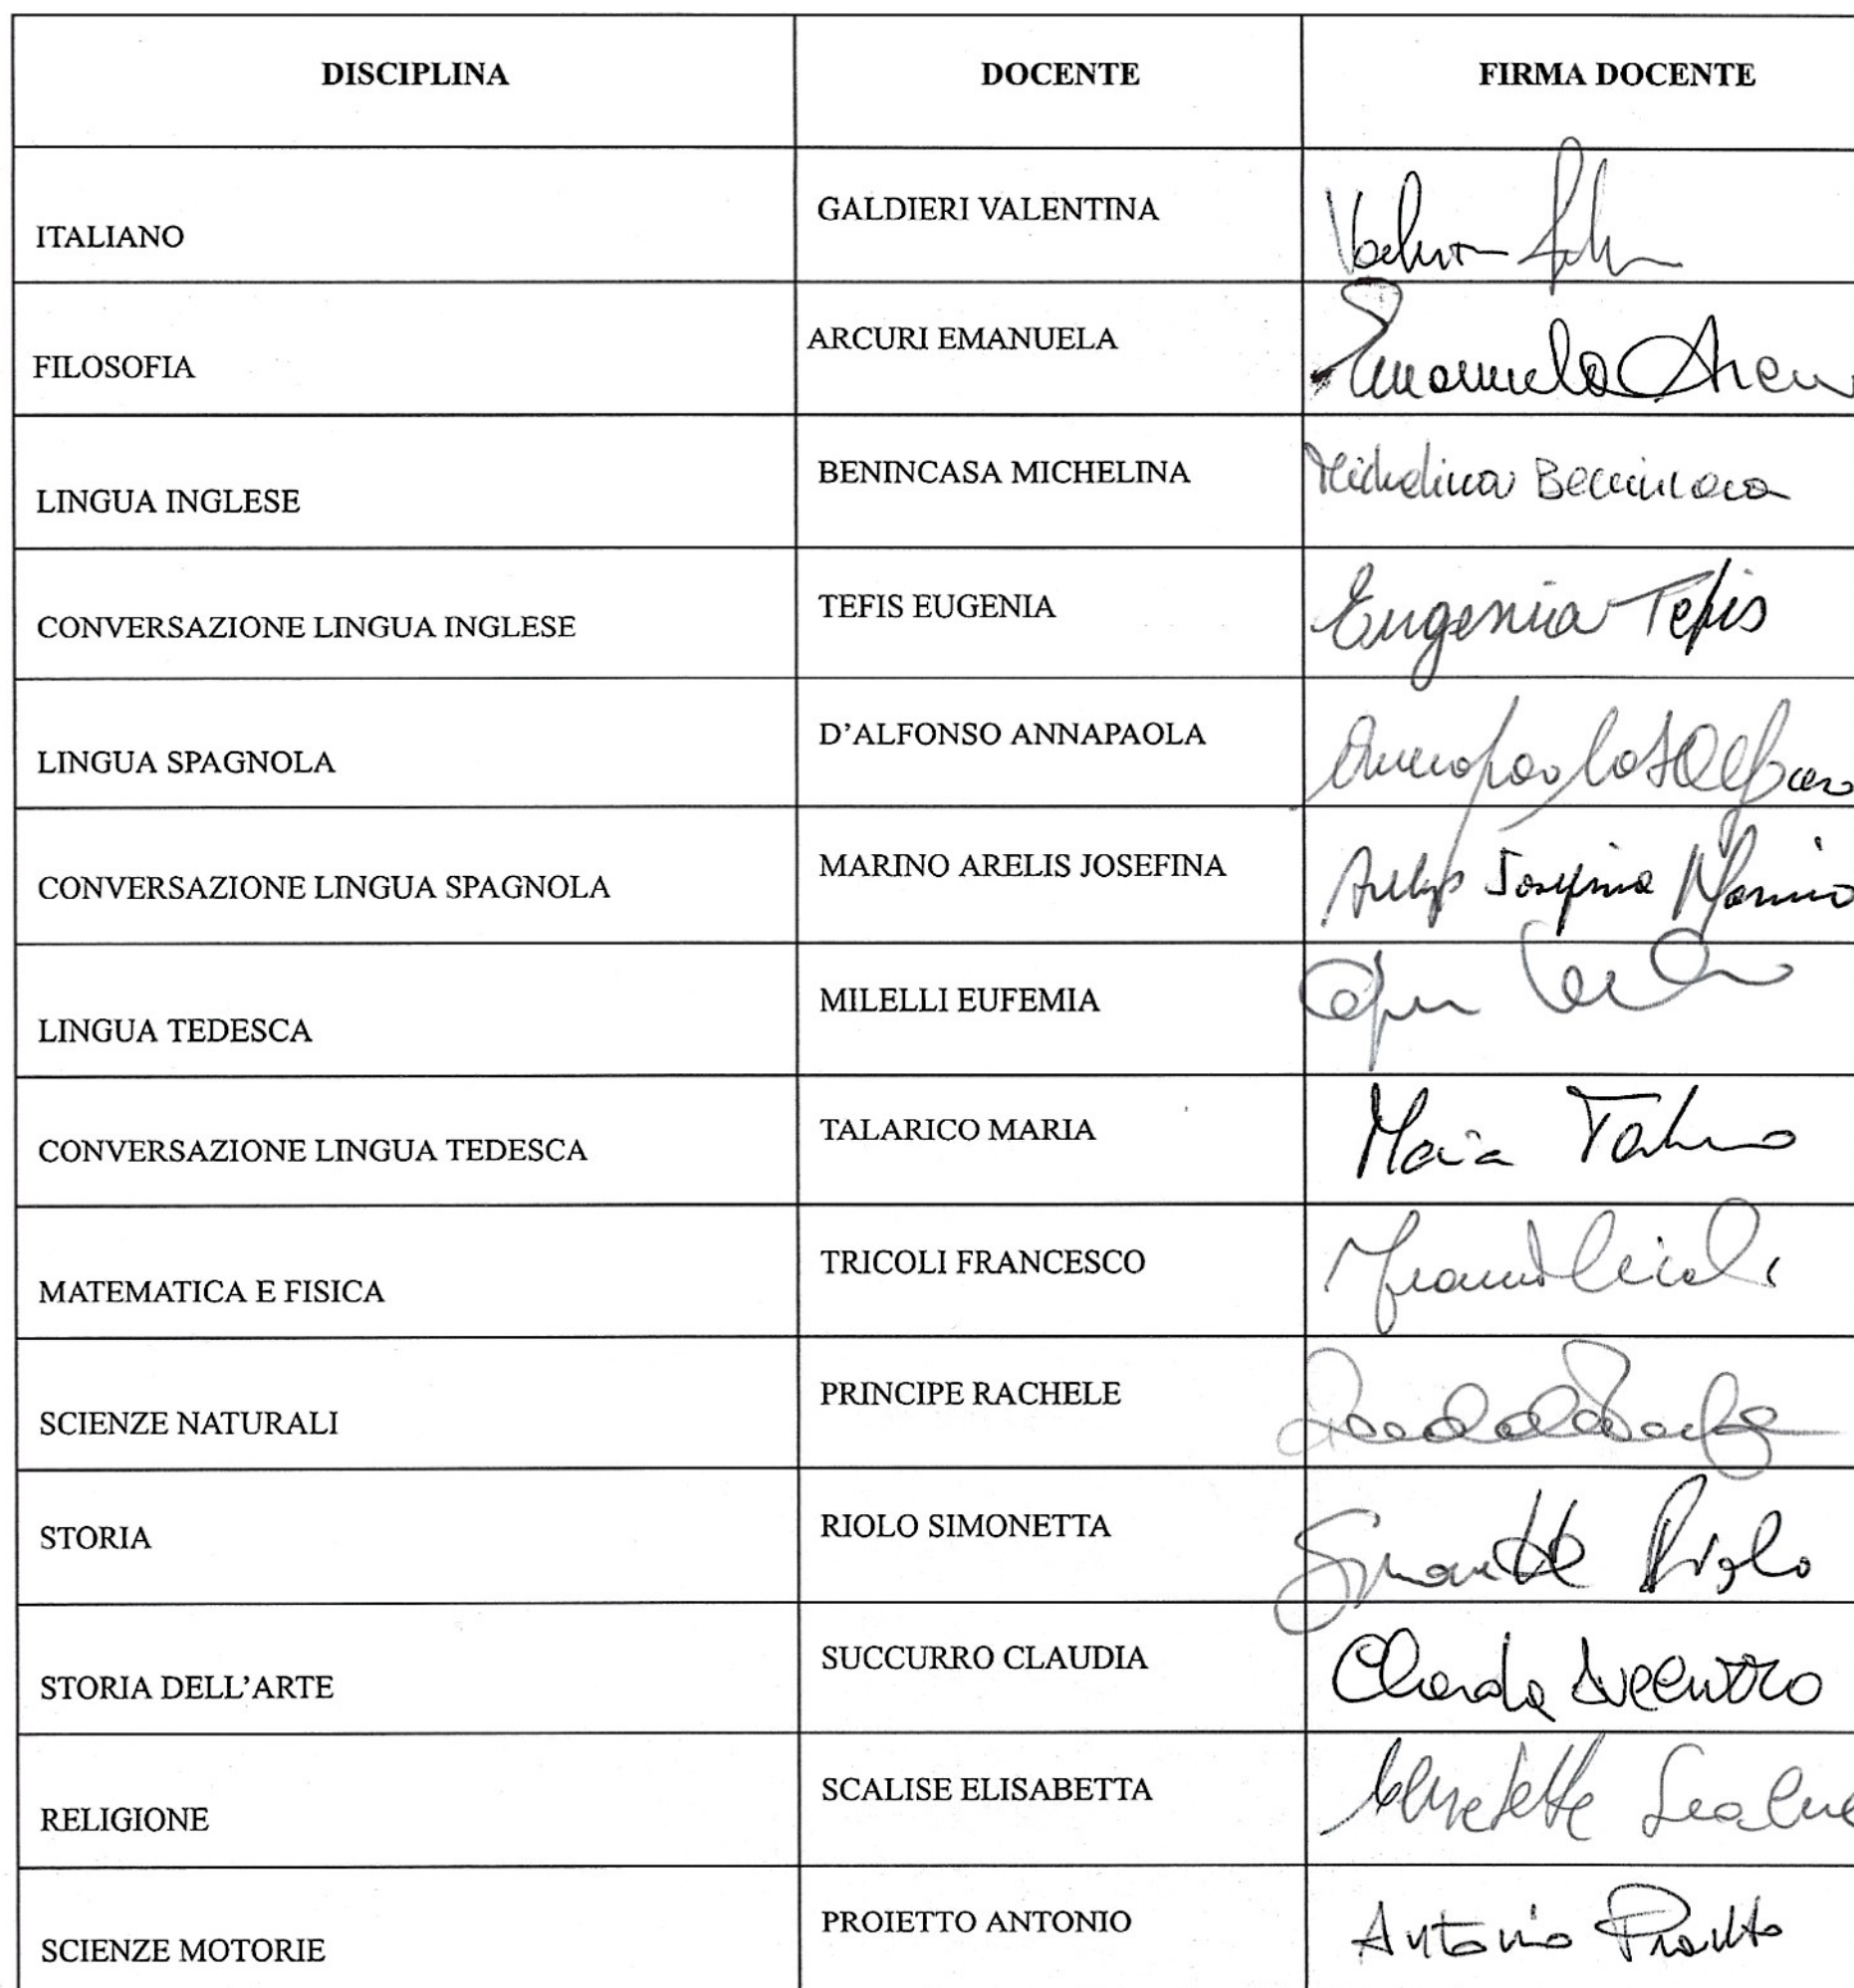 DISCIPLINA DOCENTE FIRMA DOCENTE
ITALIANO GALDIERI VALENTINA
FILOSOFIA ARCURI EMANUELA Emanuela Arcu
LINGUA INGLESE BENINCASA MICHELINA Michelina Benincasa
CONVERSAZIONE LINGUA INGLESE TEFIS EUGENIA Eugenia Tefis
LINGUA SPAGNOLA D'ALFONSO ANNAPAOLA
CONVERSAZIONE LINGUA SPAGNOLA MARINO ARELIS JOSEFINA Arelys Josefina Marino
LINGUA TEDESCA MILELLI EUFEMIA
CONVERSAZIONE LINGUA TEDESCA TALARICO MARIA Maria
MATEMATICA E FISICA TRICOLI FRANCESCO
SCIENZE NATURALI PRINCIPE RACHELE
STORIA RIOLO SIMONETTA Simonetta Riolo
STORIA DELL'ARTE SUCCURRO CLAUDIA Claudia Succurro
RELIGIONE SCALISE ELISABETTA
SCIENZE MOTORIE PROIETTO ANTONIO Antonio Proietto